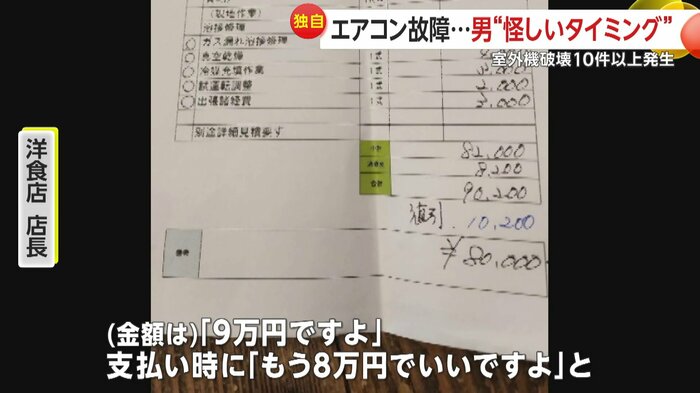 独自
エアコン故障…男“怪しいタイミング”
室外機破壊10件以上発生
洋食店 店長
浴接修理
ガス漏れ浴接修理
真空乾燥
1式
冷媒充填作業
1式
試運転調整
1式
2,000
出張諸経費
1式
3,000
別途詳細見積要す
小計
82,000
消費税
8,200
合計
90,200
値引 10,200
備考
¥80,000
(金額は)「9万円ですよ」
支払い時に「もう8万円でいいですよ」と